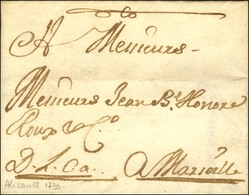 A Messieurs
Messieurs Jean Bt. Honoré
Roux & Co.
D. L. Ca. a Marseille
Alicante